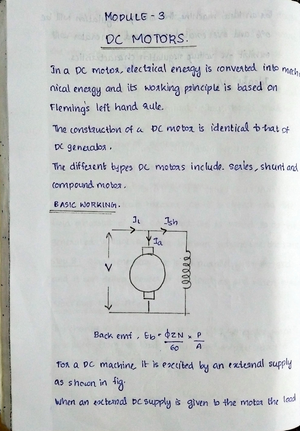 MODULE - 3
DC MOTORS.
In a DC motor, electrical energy is converted into mech
nical energy and its working principle is based on
Fleming's left hand rule.
The construction of a DC motor is identical to that of
DC generator.
The different types DC motors include series, shunt and
compound motor.
BASIC WORKING.
IL Ish
Ia
V
Back emf, Eb = ΦZN/60 × P/A
For a DC machine it is excited by an external supply
as shown in fig.
When an external DC supply is given to the motor the load